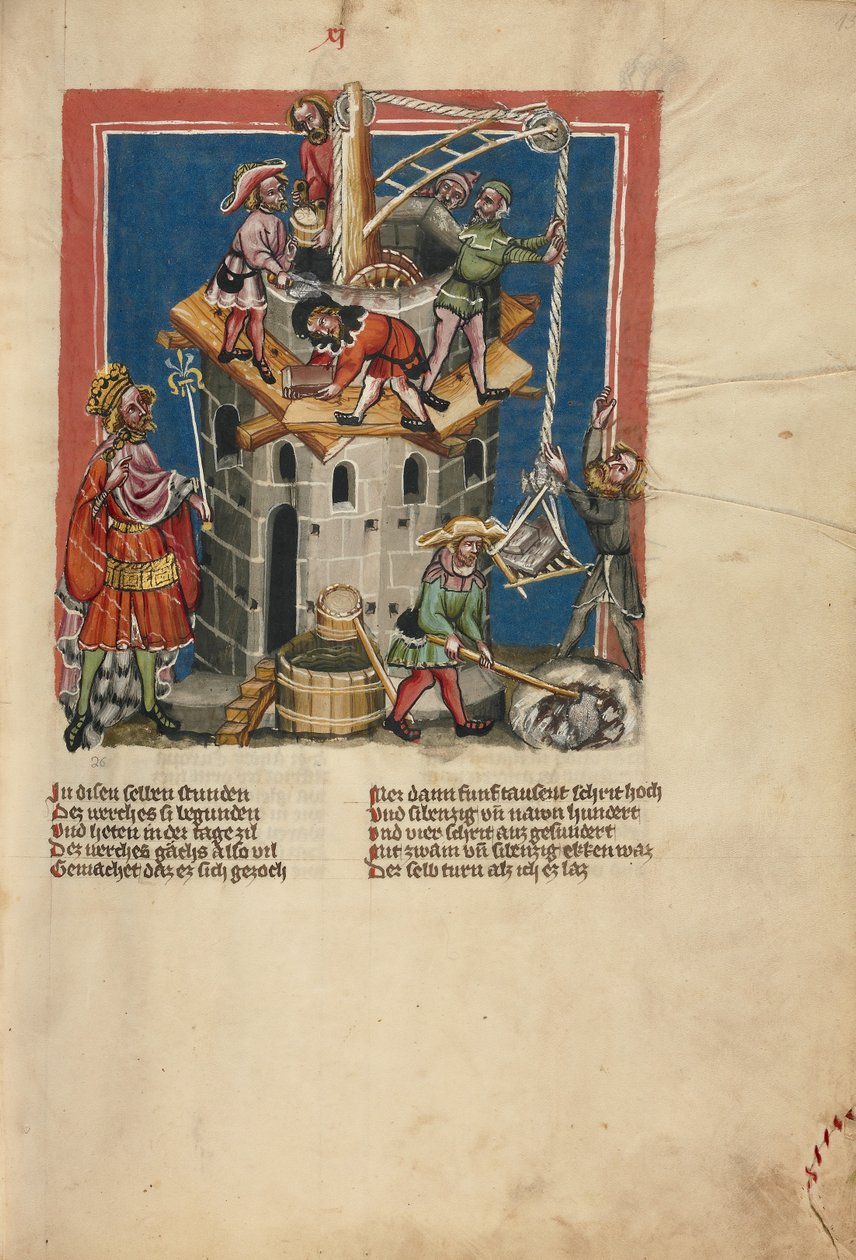 xj
13
26
In disen selben stunden
Dez werches si begunden
Vnd heten in der tage zil
Dez werches gaehs also vil
Gemachet daz ez sich gezoch
Mer dann funf tausent schrit hoch
Vnd sibenzig vn̄ nawn hundert
vnd vier schrit auz gesundert
Mit zwain vn̄ sibenzig ekken waz
Der selb turn alz ich ez laz